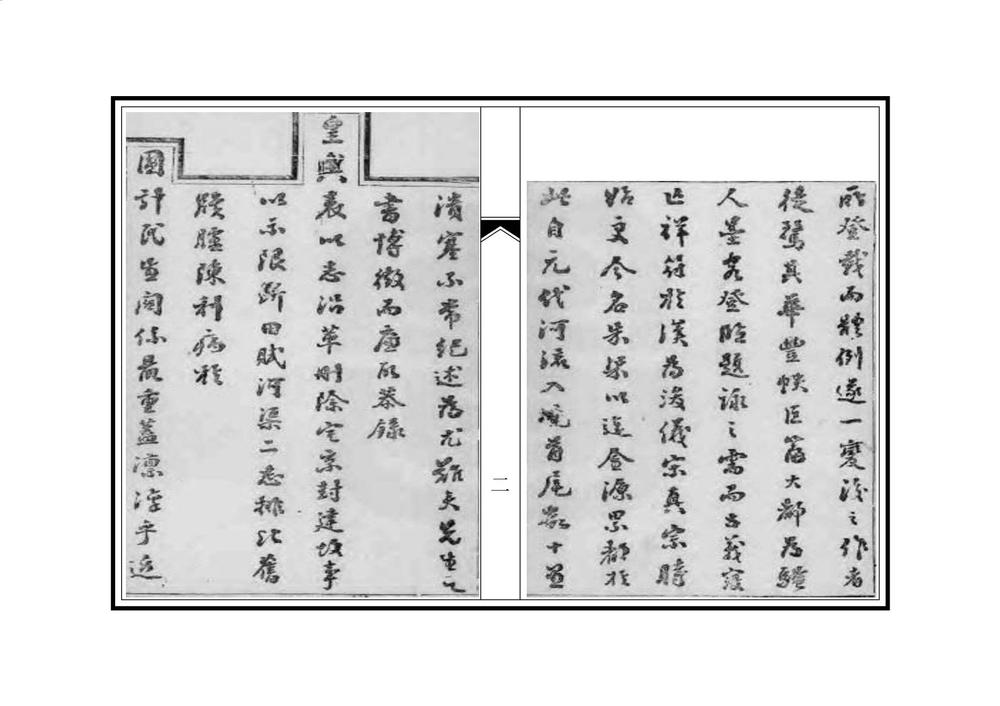 所登載而體例遂一變後之作者
徒騖其華豐帙巨富大都為騷
人墨客登臨題詠之需而古義寖
亡祥符於漢為浚儀宋真宗時
始更今名宋梁以迄金源累都於
此自元代河流入境首尾數十
潰塞不常紀述為尤難夫先生之
書博徵而慮取恭錄
皇輿表以志沿革刪除完宗封建故事
以示限斷田賦河渠二志排比舊
牘臚陳利病於
國計民生関係最重蓋凜凜乎近
二